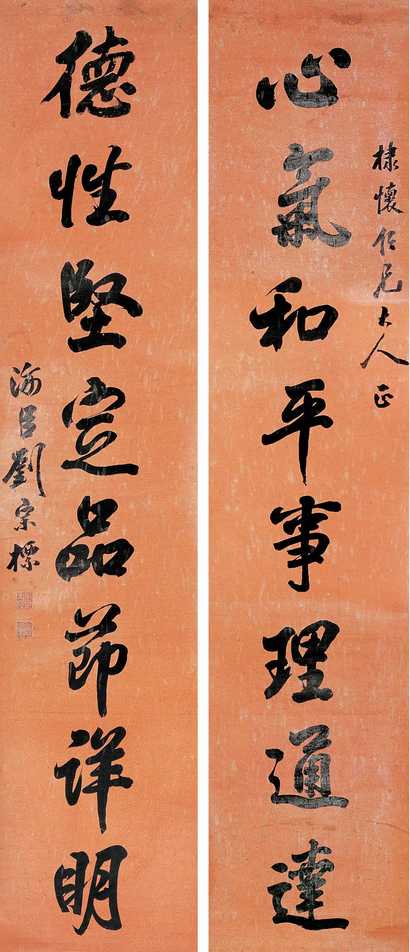 棣懷仁兄大人正
心氣和平事理通達
德性堅定品節詳明
海臣劉宗標